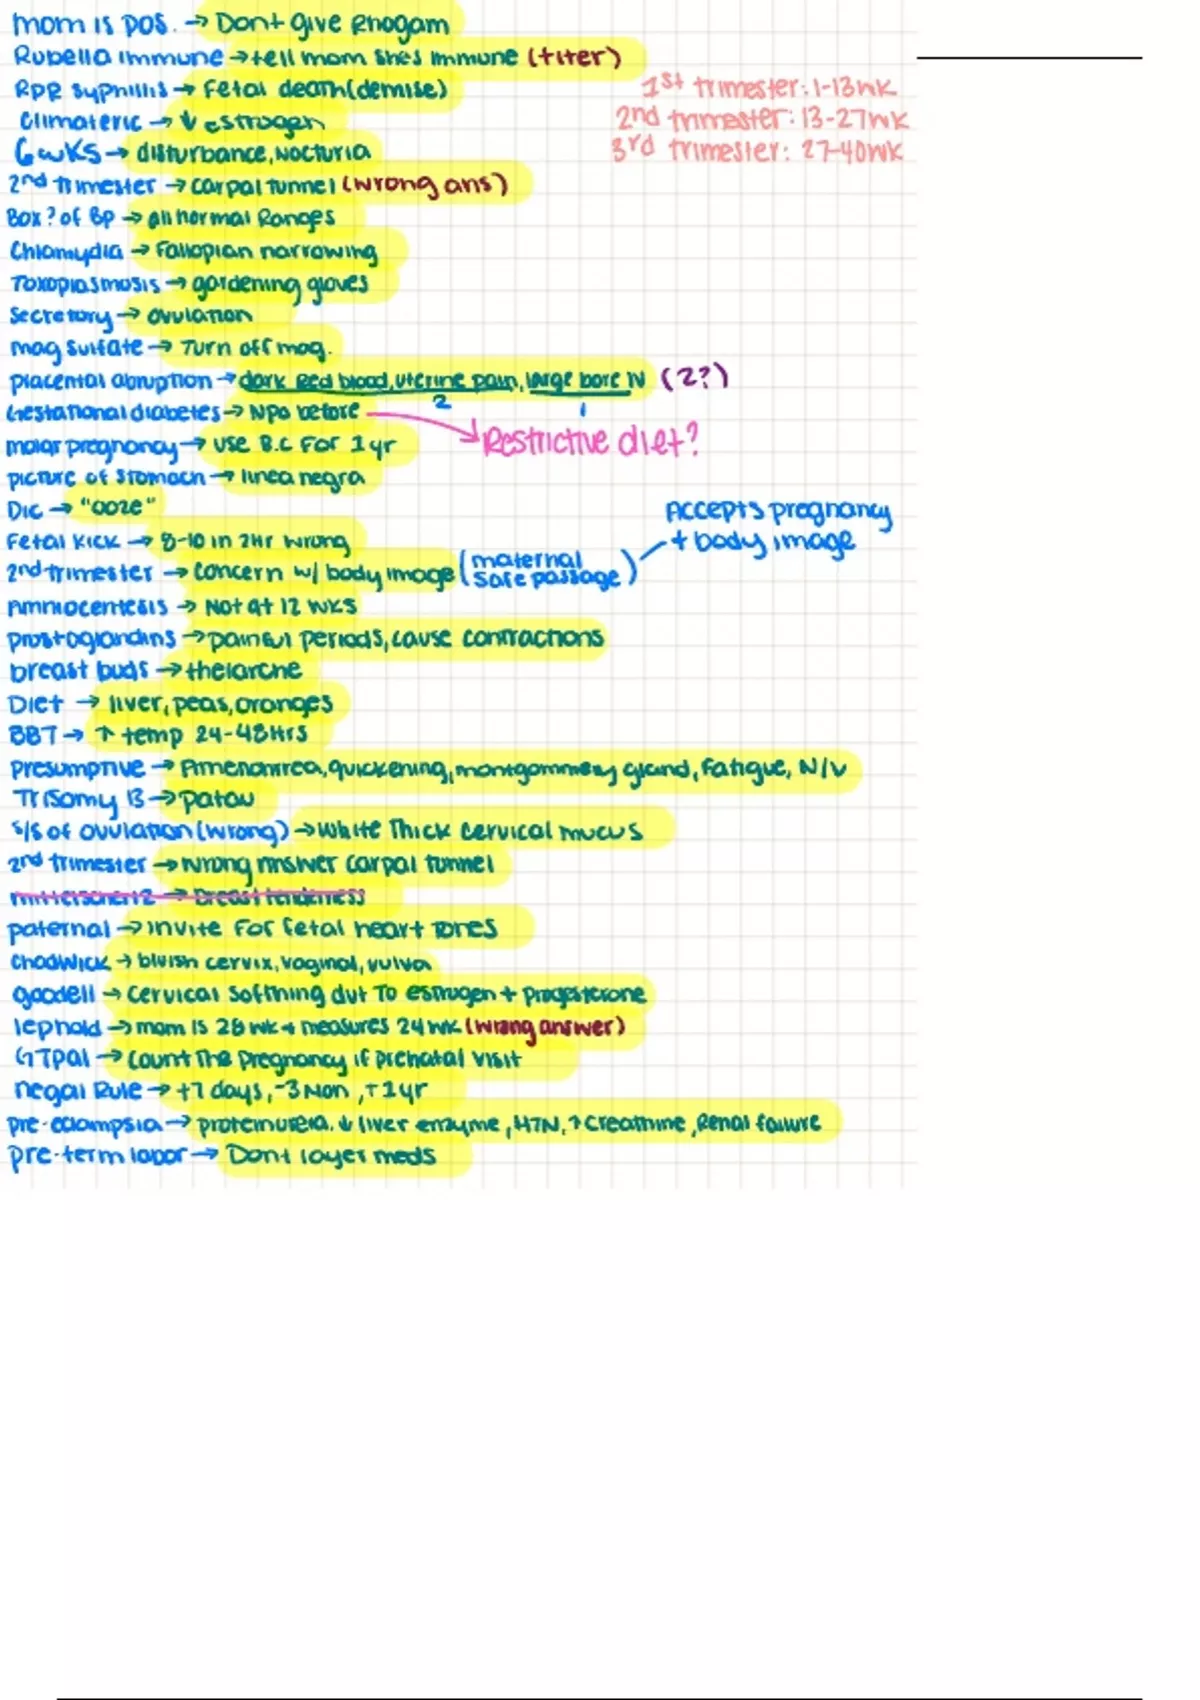 mom is pos. → Dont give Rhogam
Rubella immune → tell mom shes immune (titer)
RPR syphillis → Fetal death (demise)
1st trimester: 1-13wk
2nd trimester: 13-27wk
3rd trimester: 27-40wk
Climateric → ↓ estrogen
6 wks → disturbance, Nocturia
2nd trimester → carpal tunnel (wrong ans)
Box ? of Bp → all normal Ranges
Chlamydia → Fallopian narrowing
Toxoplasmosis → gardening gloves
Secretory → ovulation
mag sulfate → Turn off mag.
placental abruption → dark Red blood, uterine pain, large bore IV (2?)
2 1
Gestational diabetes → NPO before
→ Restrictive diet?
molar pregnancy → use B.C For 1 yr
picture of stomach → linea negra
DIC → "ooze"
Fetal kick → 8-10 in 2Hr wrong
2nd trimester → concern w/ body image (maternal safe passage)
Accepts pregnancy
+ body image
Amniocentesis → Not at 12 wks
prostoglandins → painful periods, cause contractions
breast buds → thelarche
Diet → liver, peas, oranges
BBT → ↑ temp 24-48Hrs
presumptive → Amenorrrea, quickening, montgommery gland, Fatigue, N/V
Trisomy 13 → patau
s/s of ovulation (wrong) → White Thick cervical mucus
2nd trimester → Wrong Answer carpal tunnel
→ Breast tenderness
paternal → invite For fetal heart Tones
chadwick → bluish cervix, vaginal, vulva
goodell → Cervical softning dut To estrogen + progesterone
lephold → mom is 28 wk + measures 24 wk (wrong answer)
GTpal → count The pregnancy if prenatal visit
negal Rule → +7 days, -3 Mon, +1 yr
pre-eclampsia → proteinureia, ↓ liver enzyme, HTN, ↑ Creatnine, Renal failure
pre-term labor → Dont layer meds